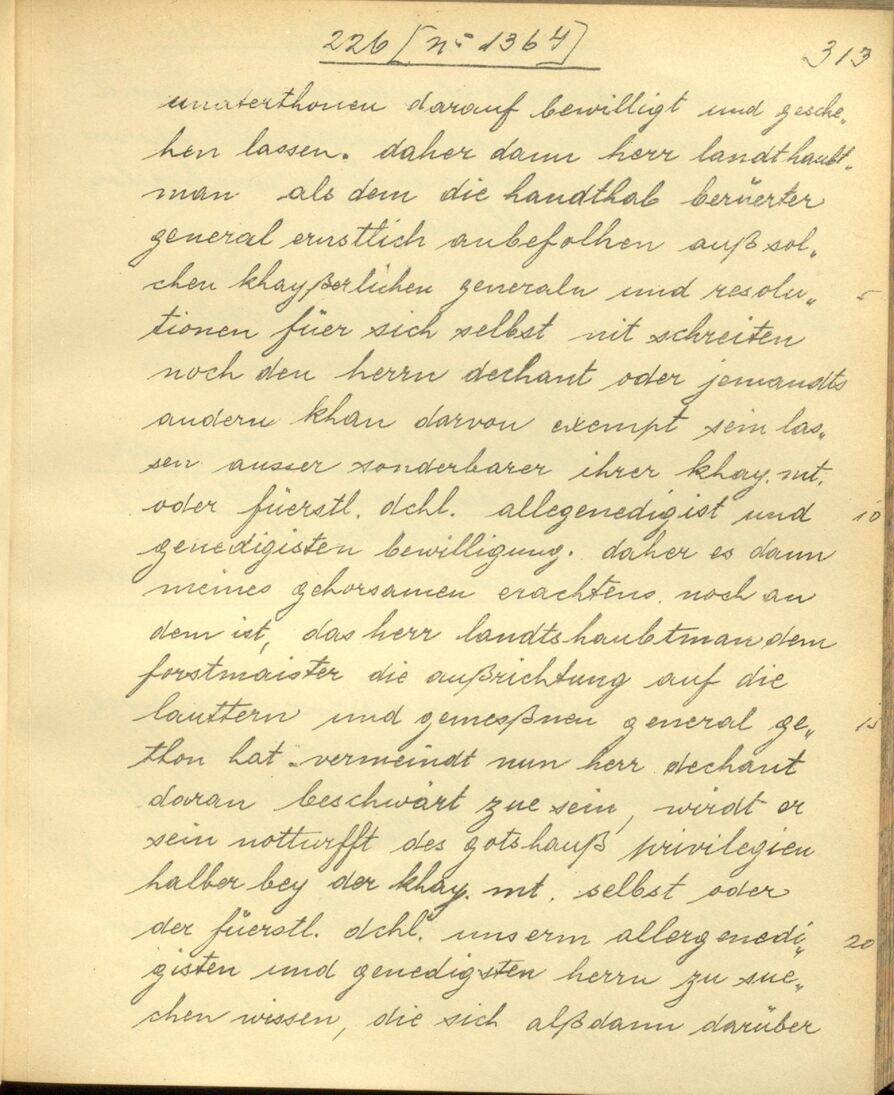 226 [nº 1364]
313
unnterthonen darauf bewilligt und gesche„
hen lassen. daher dann herr landthaubt„
man als dem die handthab berüerter
general ernstlich anbefolhen auß sol„
chen khayßerlichen generaln und resolu„ 5
tionen füer sich selbst nit schreiten
noch den herrn dechant oder jemandts
andern khan darvon exempt sein las„
sen ausser sonderbarer ihrer khay. mt.
oder füerstl. dchl. allegenedigist und 10
genedigisten bewilligung. daher es dann
meines gehorsamen erachtens noch an
dem ist, das herr landtshaubtman dem
forstmaister die außrichtung auf die
lauttern und gemeßnen general ge„ 15
thon hat. vermeindt nun herr dechant
daran beschwärt zue sein, wirdt er
sein notturfft des gotshauß privilegien
halber bey der khay. mt. selbst oder
der füerstl. dchl. unserm allergenedi„ 20
gisten und genedigsten herrn zu sue„
chen wissen, die sich alßdann darüber